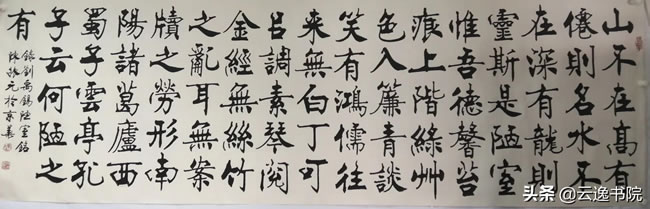 山不在高有
僊則名水不
在深有龍則
靈斯是陋室
惟吾德馨苔
痕上階綠艸
色入簾青談
笑有鴻儒往
来無白丁可
吕調素琴閱
金經無絲竹
之亂耳無案
牘之勞形南
陽諸葛廬西
蜀子雲亭孔
子云何陋之
有
錄劉禹錫陋室銘
元於京華
头条 @云逸书院